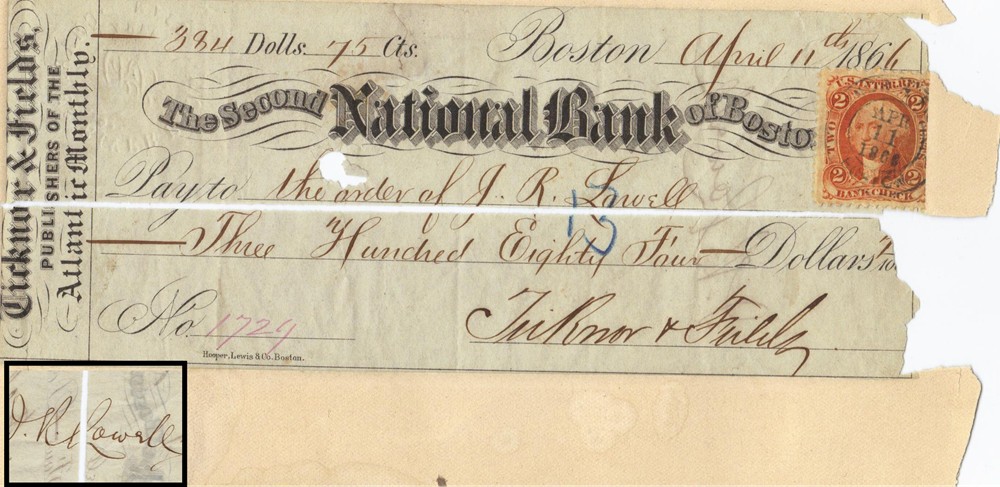 Ticknor & Fields,
PUBLISHERS OF THE
Atlantic Monthly.
384 Dolls. 75 Cts. Boston April 11th 1866
The Second National Bank of Bosto
U.S. INTER. REV.
2 2
TWO CENTS
APR
11
1866
2 2
BANK CHECK
Pay to the order of J. R. Lowell
13
Three Hundred Eighty Four Dollars
No. 1729 Ticknor & Fields
Hooper, Lewis & Co. Boston.
J. R. Lowell